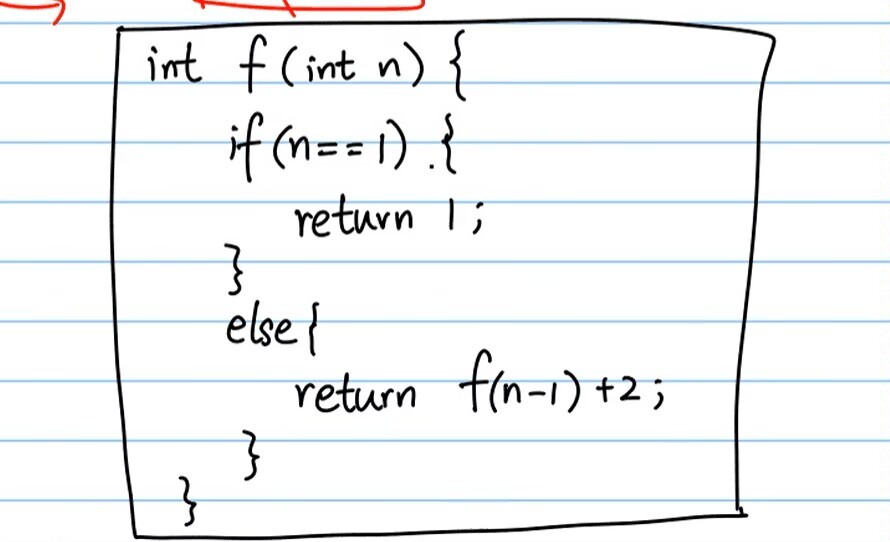 int f(int n) {
if(n==1) {
return 1;
}
else{
return f(n-1)+2;
}
}